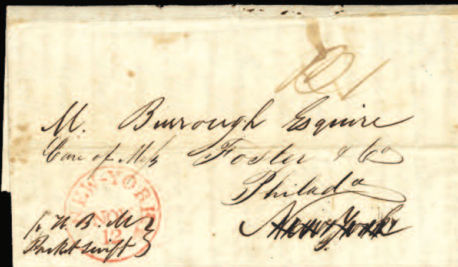 M. Burrough Esquire
Care of Mr Foster & Co
Philada
New York
NEW-YORK
NOV
12
Packet Swift